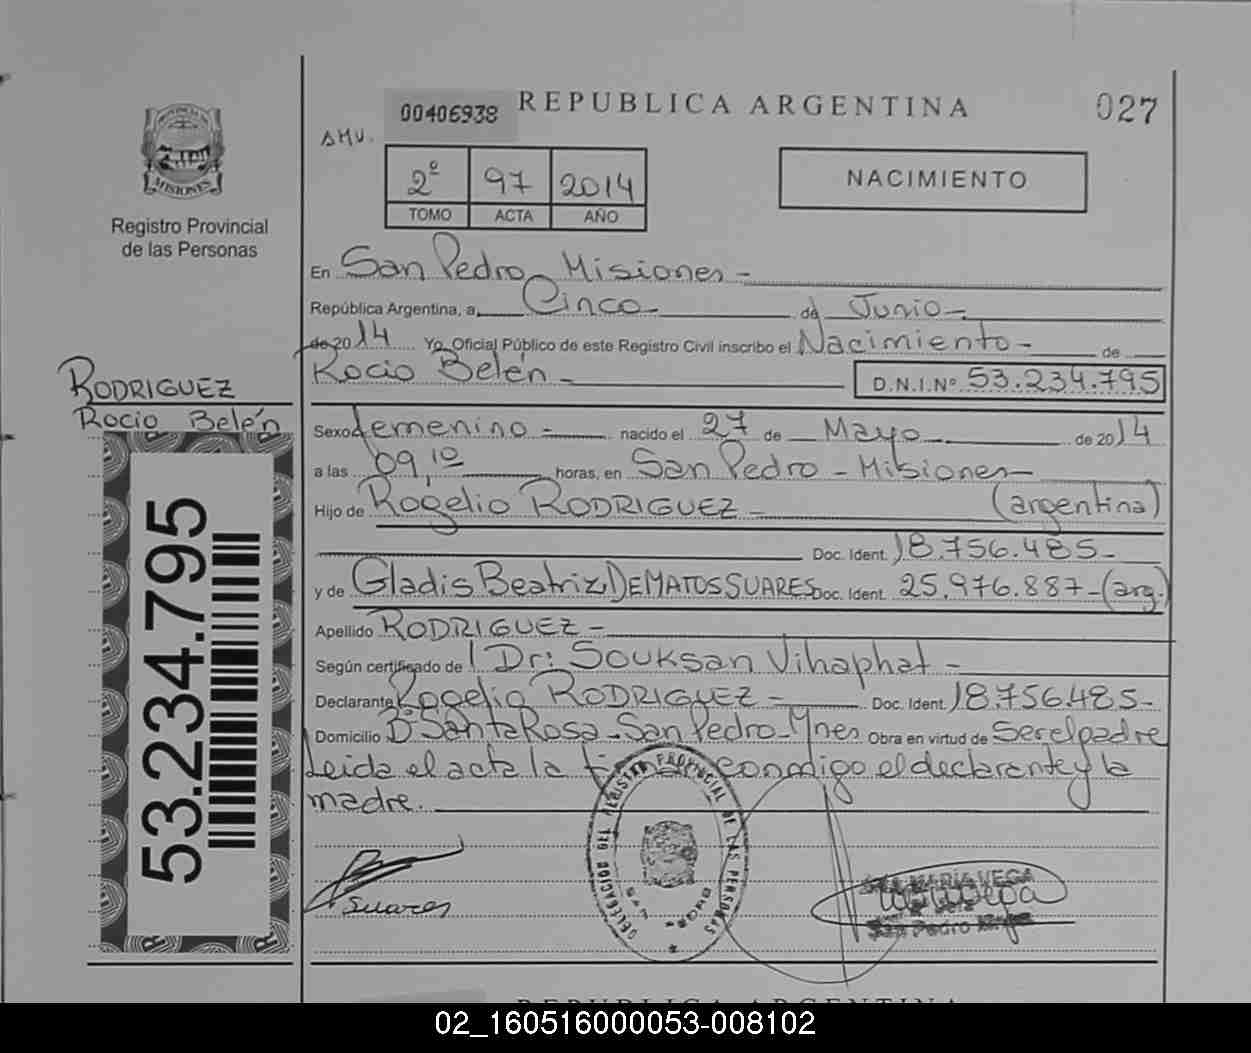 00406938 REPUBLICA ARGENTINA 027
2º 97 2014
TOMO ACTA AÑO
NACIMIENTO
PROVINCIA DE MISIONES
Registro Provincial
de las Personas
En San Pedro Misiones -
República Argentina, a Cinco - de Junio -
de 2014 Yo, Oficial Público de este Registro Civil inscribo el Nacimiento - de
Rocio Belén - D.N.I.Nº 53.234.795
RODRIGUEZ
Rocio Belén
53.234.795
Sexo femenino - nacido el 27 de Mayo - de 2014
a las 09,10 horas, en San Pedro - Misiones -
Hijo de Rogelio RODRIGUEZ - (argentina)
Doc. Ident. 18.756.485-
y de Gladis Beatriz DE MATOS SUARES Doc. Ident. 25.976.887-(arg.)
Apellido RODRIGUEZ -
Según certificado de Dr: Souksan Vihaphat -
Declarante Rogelio RODRIGUEZ - Doc. Ident. 18.756.485-
Domicilio Bº Santa Rosa - San Pedro - Mnes Obra en virtud de Ser el padre
Leida el acta la firman conmigo el declarante y la
madre.
Suares
DELEGACION DEL REGISTRO PROVINCIAL DE LAS PERSONAS
MARIA VEGA
San Pedro Mnes
REPUBLICA ARGENTINA
02_160516000053-008102